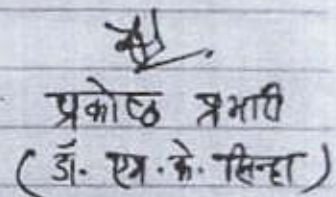 प्रकोष्ठ प्रभारी
( डॉ. एम. के. सिन्हा )